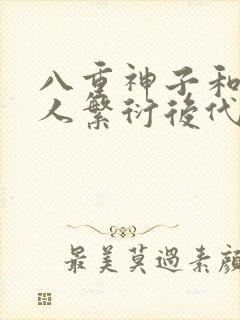 八重神子和
人繁衍後代
最美莫過素顏